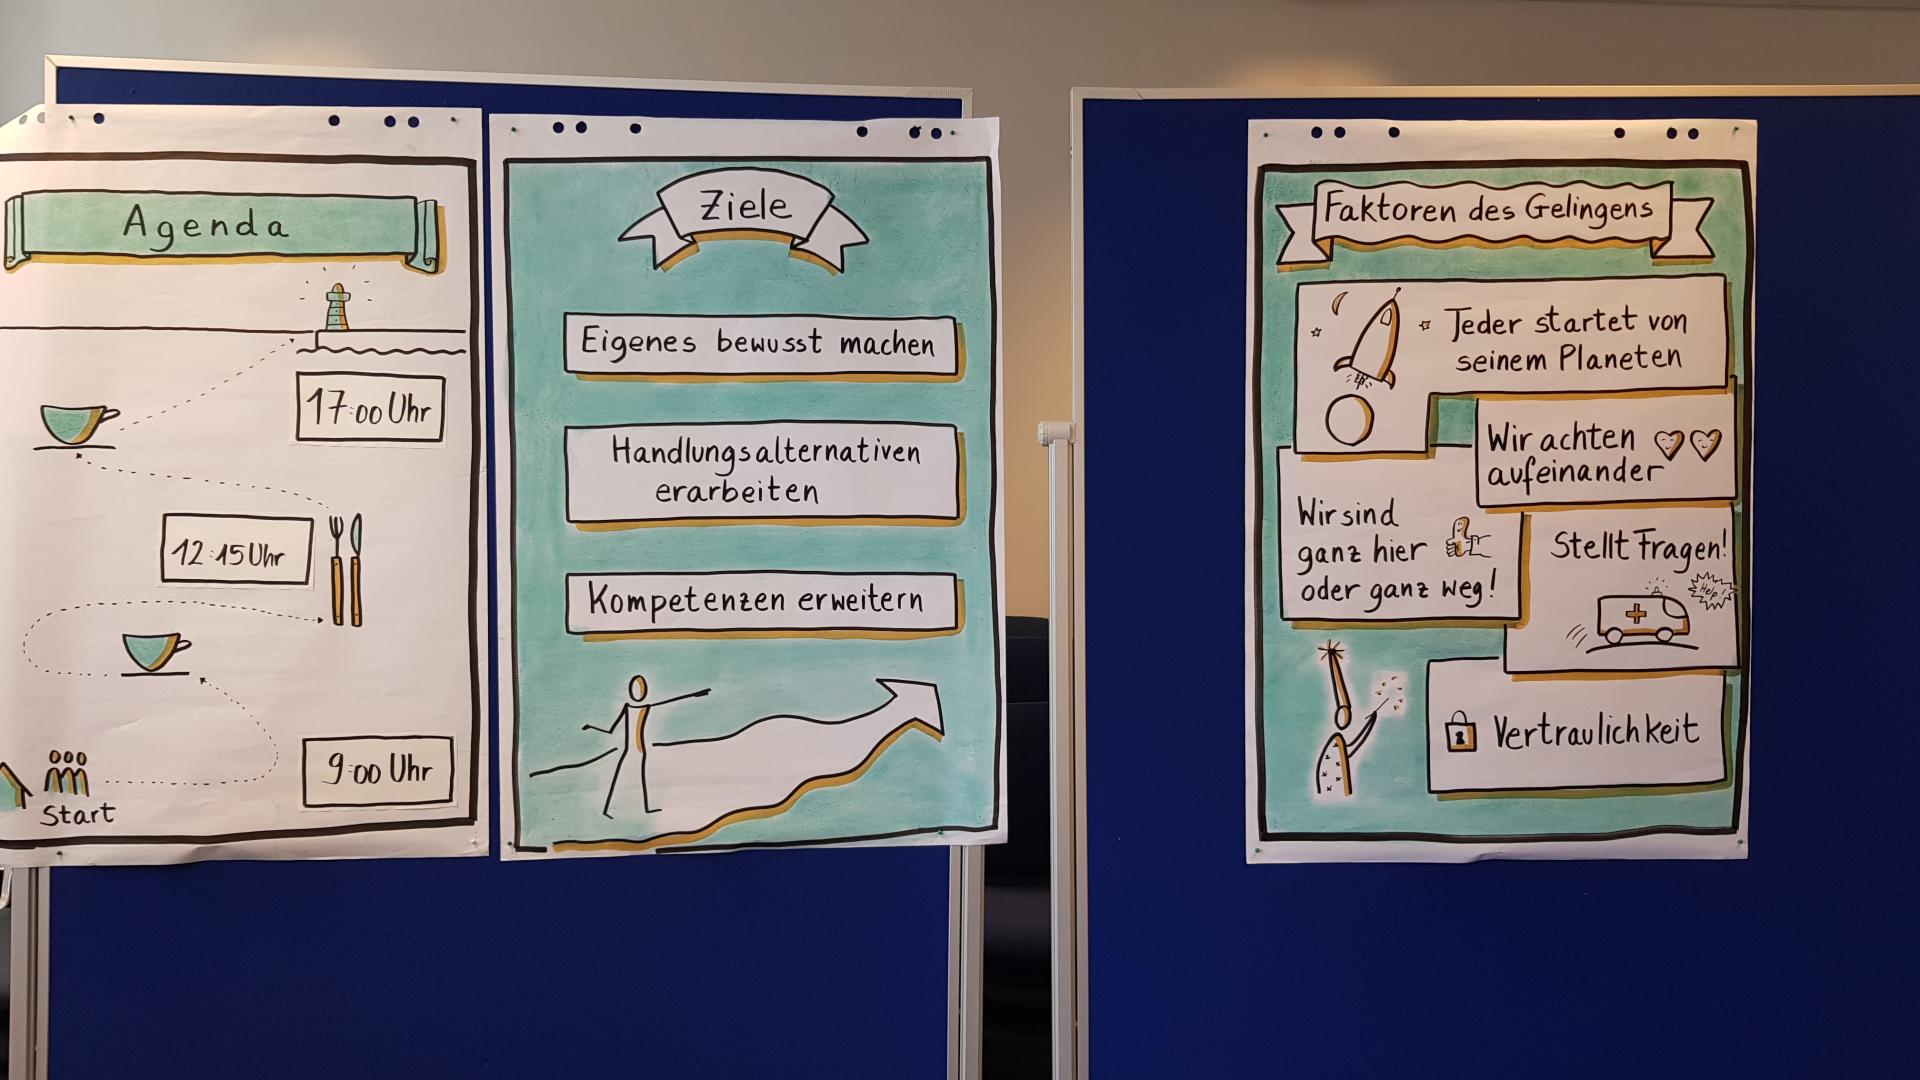 Agenda
17:00 Uhr
12:15 Uhr
9:00 Uhr
Start
Ziele
Eigenes bewusst machen
Handlungsalternativen
erarbeiten
Kompetenzen erweitern
Faktoren des Gelingens
Jeder startet von
seinem Planeten
Wir achten
aufeinander
Wir sind
ganz hier
oder ganz weg!
Stellt Fragen!
Help!
Vertraulichkeit